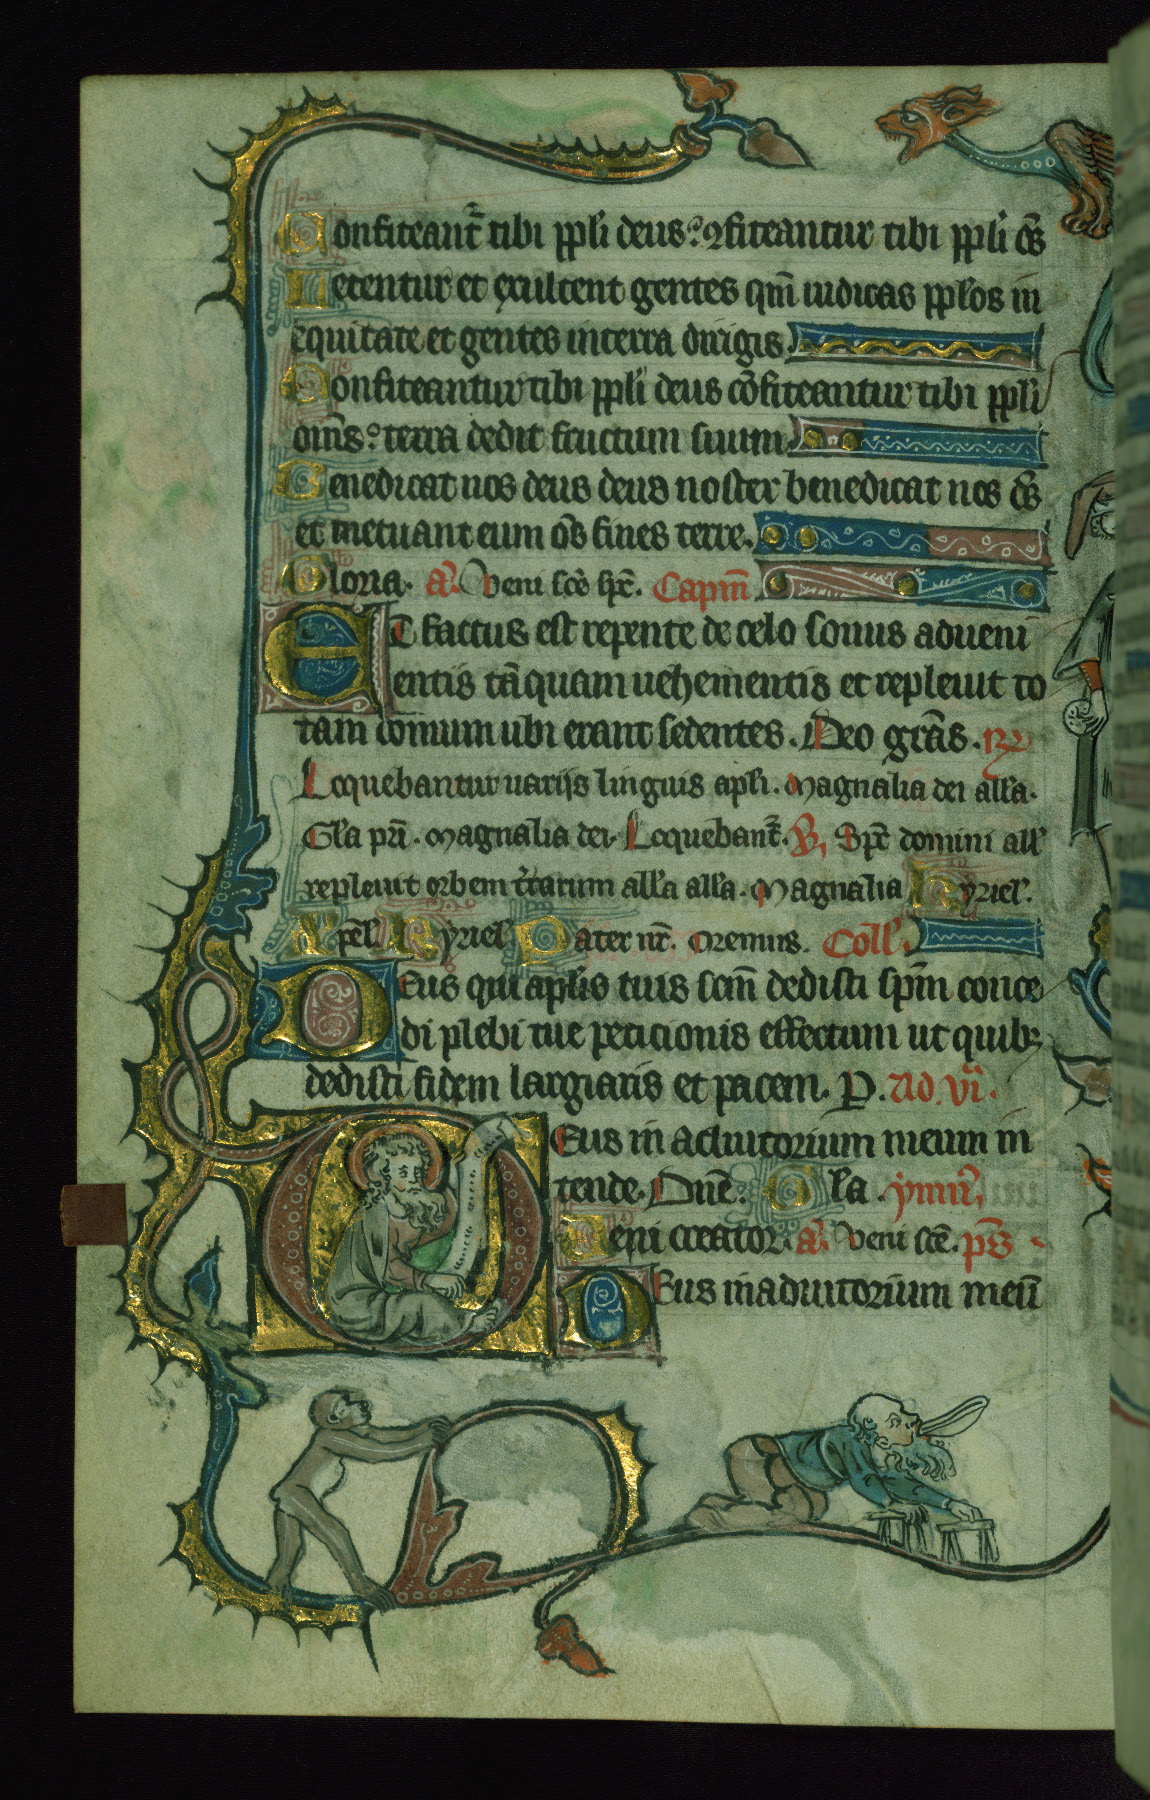 Confiteant᷑ tibi ppli deus ꝯfiteantur tibi ppli õs
Letentur et exultent gentes qm̃ iudicas pplos in
equitate et gentes in terra dirigis
Confiteantur tibi ppli deus cõfiteantur tibi ppli
om̃s terra dedit fructum suum
Benedicat nos deus deus noster benedicat nos ds̃
et metuant eum õs fines terre.
Gloria. añ. Veni sc̃e sp̃c. Capitm̃
ET factus est repente de celo sonus adueni
entis tãquam uehementis et repleuit to
tam domum ubi erant sedentes. Deo gr̃as. ℞
Loquebantur uariis linguis apl̃i. Magnalia dei all̃a.
Gl̃a pri. Magnalia dei. Loquebant᷑. ℣ Sp̃c domini all̃
repleuit orbem t̃rarum all̃a all̃a. Magnalia Kyriel.
Xpel. Kyriel. Pater nr̃. Oremus. Coll̃
Deus qui apl̃is tuis scm̃ dedisti sp̃m conce
di plebi tue peticionis effectum ut quibꝫ
dedisti fidem largiaris et pacem. P. Ad. vi.
Deus in adiutorium meum in
tende. Dñe. Gl̃a. ymñ.
Veni creator. añ. Veni sc̃e. ps̃
Deus in adiutorium meũ